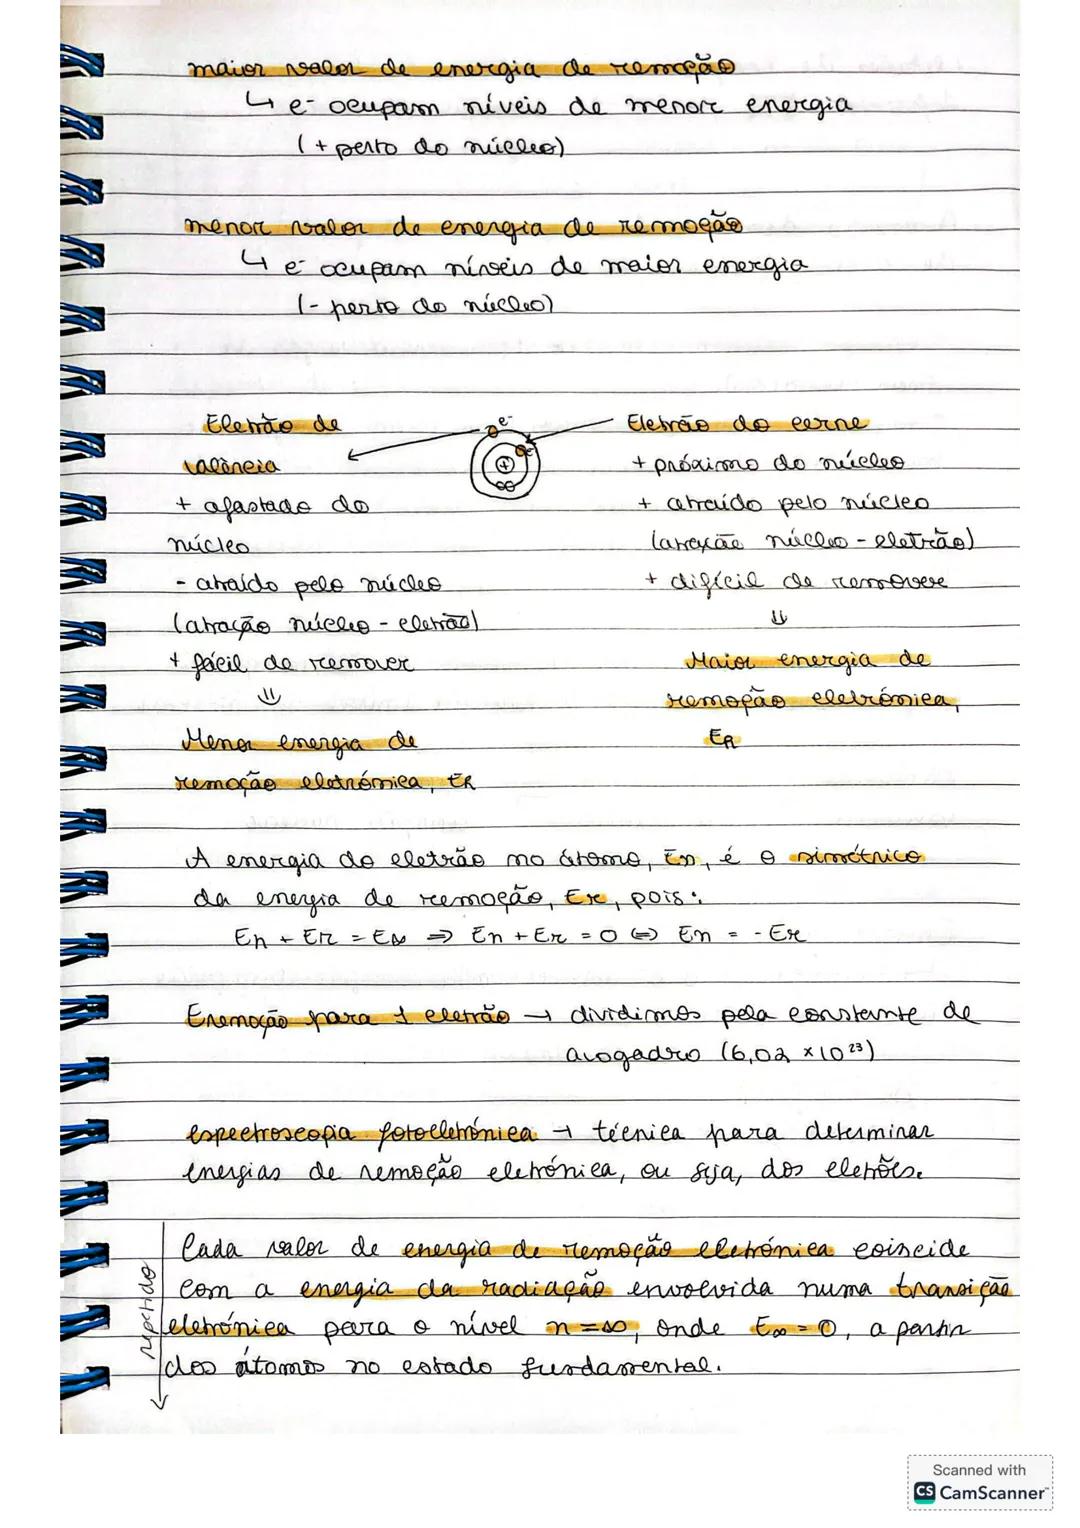 maior valor de energia de remoção
↳ e- ocupam níveis de menor energia
(+ perto do núcleo)
menor valor de energia de remoção
↳ e- ocupam níveis de maior energia
(- perto do núcleo)
Eletrão de
valência
+ afastado do
núcleo
- atraído pelo núcleo
(atração núcleo - eletrão)
+ fácil de remover
⇓
Menor energia de
remoção eletrónica, ER
e-
e-
+
Eletrão do cerne
+ próximo do núcleo
+ atraído pelo núcleo
(atração núcleo - eletrão)
+ difícil de remover
⇓
Maior energia de
remoção eletrónica,
ER
A energia do eletrão no átomo, En, é o simétrico
da energia de remoção, Er, pois:
En + Er = E∞ ⇒ En + Er = 0 ⇔ En = - Er
Eremoção para 1 eletrão → dividimos pela constante de
avogadro (6,02 × 10²³)
espectroscopia fotoeletrónica → técnica para determinar
energias de remoção eletrónica, ou seja, dos eletrões.
repetido
Cada valor de energia de remoção eletrónica coincide
com a energia da radiação envolvida numa transição
eletrónica para o nível n=∞, onde E∞ = 0, a partir
dos átomos no estado fundamental.
Scanned with
CS CamScanner